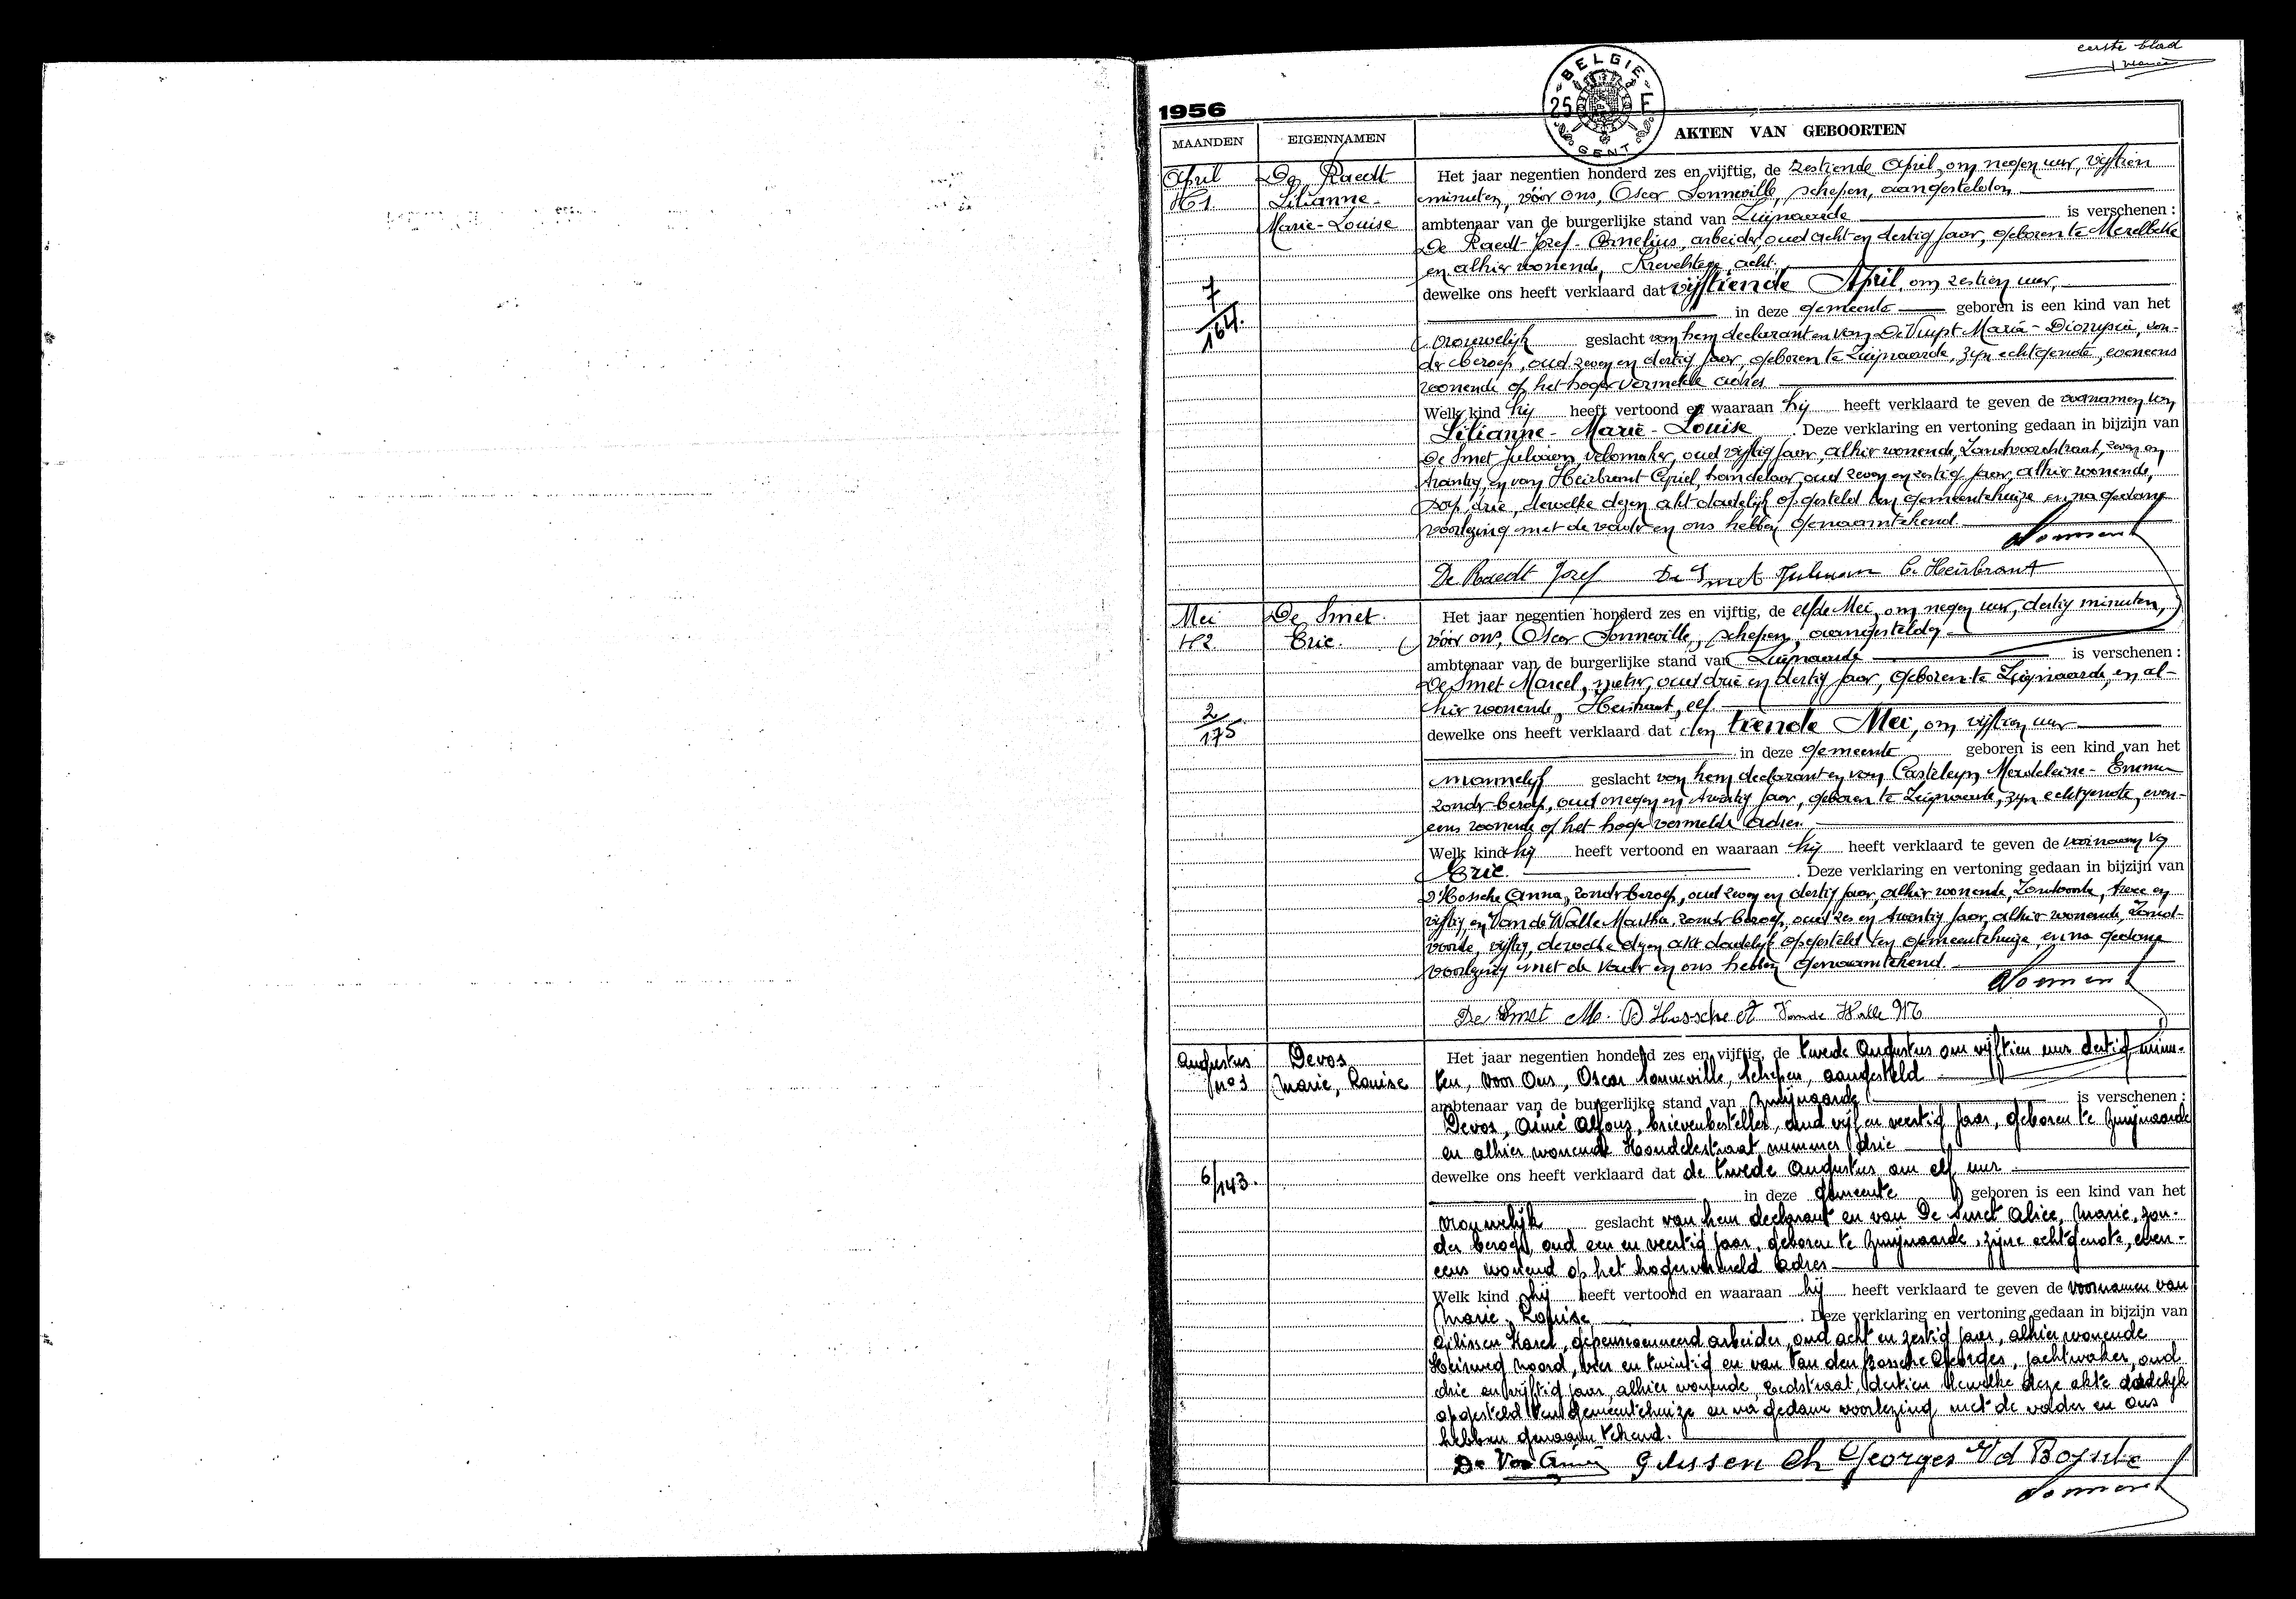 eerste blad
1956
BELGIE
25 F
GENT
MAANDEN
EIGENNAMEN
AKTEN VAN GEBOORTEN
April
N 1
De Raedt
Lilianne-
Marie-Louise
7/164.
Het jaar negentien honderd zes en vijftig, de zestiende April, om negen uur, vijftien
minuten, vóór ons, Oscar Sonneville, schepen, aangestelden
ambtenaar van de burgerlijke stand van Zwijnaarde is verschenen :
De Raedt Jozef-Cornelius, arbeider, oud acht en dertig jaar, geboren te Merelbeke
en alhier wonende, acht.
dewelke ons heeft verklaard dat vijftiende April, om zestien uur,
in deze gemeente geboren is een kind van het
vrouwelijk geslacht van hem declarant en van De Vuyst Maria-Dionysia, zon-
der beroep, oud zeven en dertig jaar, geboren te Zwijnaarde, zijn echtgenote, eveneens
wonende op het hoger vermelde adres
Welk kind hij heeft vertoond en waaraan hij heeft verklaard te geven de voornamen van
Lilianne-Marie-Louise . Deze verklaring en vertoning gedaan in bijzijn van
De Smet Juliaan, velomaker, oud vijftig jaar, alhier wonende, zeven en
twintig, en van Heirbrant Cyriel, handelaar, oud zeven en zestig jaar, alhier wonende,
Dorp, drie, dewelke dezen akt dadelijk opgesteld ten gemeentehuize en na gedane
voorlezing met de vader en ons hebben genaamtekend.
De Raedt Jozef De Smet Juliaan C. Heirbrant
Mei
N 2
De Smet
Eric.
2/175
Het jaar negentien honderd zes en vijftig, de elfde Mei, om negen uur, dertig minuten,
vóór ons, Oscar Sonneville, schepen, aangestelden
ambtenaar van de burgerlijke stand van Zwijnaarde is verschenen :
De Smet Marcel, oud drie en dertig jaar, geboren te Zwijnaarde, en al-
hier wonende, elf
dewelke ons heeft verklaard dat den tiende Mei, om vijftien uur
in deze gemeente geboren is een kind van het
mannelijk geslacht van hem declarant en van Casteleyn Madeleine-Emma
zonder beroep, oud negen en twintig jaar, geboren te Zwijnaarde, zijn echtgenote, even-
eens wonende op het hoger vermelde adres.
Welk kind hij heeft vertoond en waaraan hij heeft verklaard te geven de voornaam van
Eric. . Deze verklaring en vertoning gedaan in bijzijn van
D'Hossche Anna, zonder beroep, oud zeven en dertig jaar, alhier wonende, Zandvoorde, twee en
vijftig, en Van de Walle Martha, zonder beroep, oud zes en twintig jaar, alhier wonende, Zand-
voorde, vijftig, dewelke dezen akt dadelijk opgesteld ten gemeentehuize en na gedane
voorlezing met de vader en ons hebben genaamtekend.
De Smet M. D'Hossche A Van de Walle M
Augustus
n° 3
Devos
Marie, Louise
6/143.
Het jaar negentien honderd zes en vijftig, de twede Augustus om vijftien uur dertig minu-
ten, voor Ons, Oscar Sonneville, Schepen, aangesteld
ambtenaar van de burgerlijke stand van Zwijnaarde is verschenen :
Devos, Aimé Alfons, brievenbesteller, oud vijf en veertig jaar, geboren te Zwijnaarde
en alhier wonende Hondelestraat nummer drie
dewelke ons heeft verklaard dat de twede Augustus om elf uur
in deze gemeente geboren is een kind van het
vrouwelijk geslacht van hem declarant en van De Smet Alice, Marie, zon-
der beroep, oud een en veertig jaar, geboren te Zwijnaarde, zijne echtgenote, even-
eens wonend op het hogervermeld adres
Welk kind hij heeft vertoond en waaraan hij heeft verklaard te geven de voornamen van
Marie, Louise . Deze verklaring en vertoning gedaan in bijzijn van
Gilissen Karel, gepensioenneerd arbeider, oud acht en zestig jaar, alhier wonende
Heirweg Noord, vier en twintig en van Van den Bossche Georges, jachtwaker, oud
drie en vijftig jaar, alhier wonende, dertien dewelke deze akte dadelijk
opgesteld ten gemeentehuize en na gedane voorlezing met de vader en ons
hebben genaamtekend.
De Vos Aimé Gilissen Ch Georges Vd Bossche